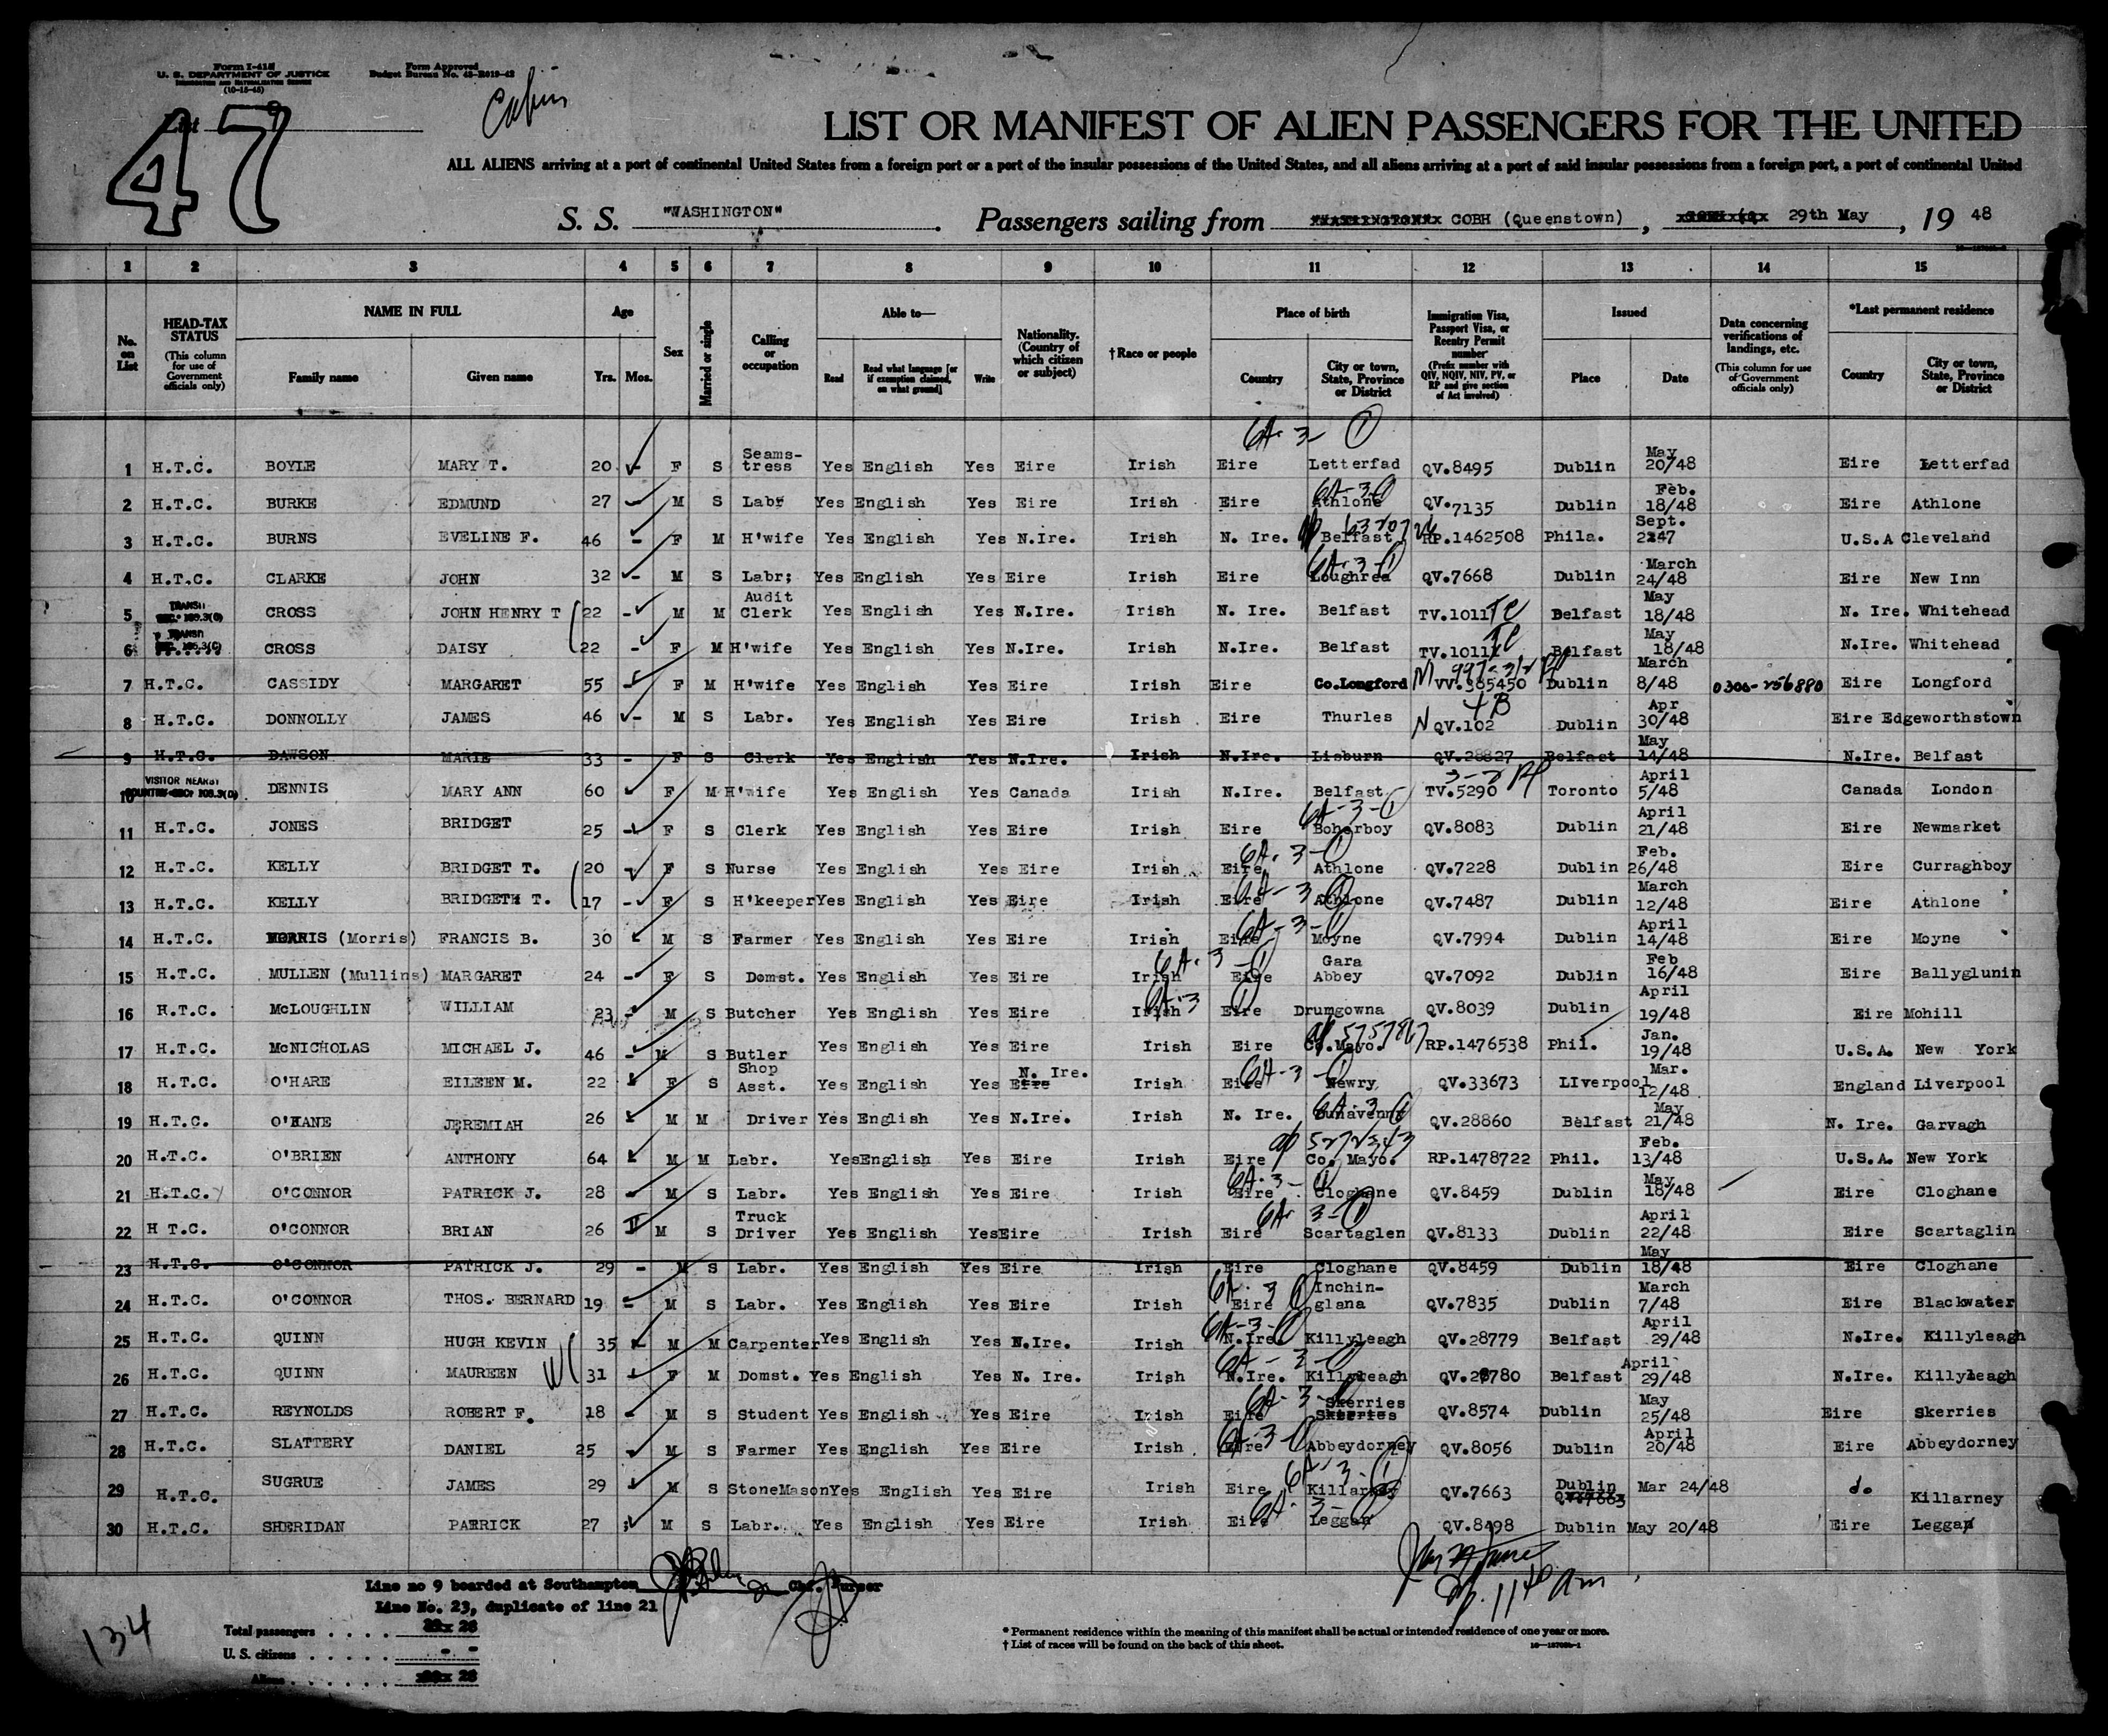 Form I-415
U. S. DEPARTMENT OF JUSTICE
IMMIGRATION AND NATURALIZATION SERVICE
(10-15-45)
Form Approved
Budget Bureau No. 43-R019-42
Cabin
List
47
LIST OR MANIFEST OF ALIEN PASSENGERS FOR THE UNITED
ALL ALIENS arriving at a port of continental United States from a foreign port or a port of the insular possessions of the United States, and all aliens arriving at a port of said insular possessions from a foreign port, a port of continental United
S. S. "WASHINGTON" . Passengers sailing from COBH (Queenstown) , 29th May , 19 48
1 2 3 4 5 6 7 8 9 10 11 12 13 14 15
No. on List
HEAD-TAX STATUS (This column for use of Government officials only)
NAME IN FULL
Family name Given name
Age
Yrs. Mos.
Sex
Married or single
Calling or occupation
Able to—
Read Read what language [or if exemption claimed, on what ground] Write
Nationality. (Country of which citizen or subject)
†Race or people
Place of birth
Country City or town, State, Province or District
Immigration Visa, Passport Visa, or Reentry Permit number (Prefix number with QIV, NQIV, NIV, PV, or RP and give section of Act involved)
Issued
Place Date
Data concerning verifications of landings, etc. (This column for use of Government officials only)
*Last permanent residence
Country City or town, State, Province or District
6A-3-①
1 H.T.C. BOYLE MARY T. 20 - F S Seams-tress Yes English Yes Eire Irish Eire Letterfad QV.8495 Dublin May 20/48 Eire Letterfad
6A-3-①
2 H.T.C. BURKE EDMUND 27 M S Labr Yes English Yes Eire Irish Eire Athlone QV.7135 Dublin Feb. 18/48 Eire Athlone
3 H.T.C. BURNS EVELINE F. 46 - F M H'wife Yes English Yes N.Ire. Irish N. Ire. Belfast RP.1462508 Phila. Sept. 2247 U.S.A Cleveland
6A-3-①
4 H.T.C. CLARKE JOHN 32 - M S Labr; Yes English Yes Eire Irish Eire Loughrea QV.7668 Dublin March 24/48 Eire New Inn
5 TRANSIT SEC. 105.3(C) CROSS JOHN HENRY T 22 - M M Audit Clerk Yes English Yes N.Ire. Irish N. Ire. Belfast TV.1011 Belfast May 18/48 N. Ire. Whitehead
6 TRANSIT SEC. 105.3(C) CROSS DAISY 22 - F M H'wife Yes English Yes N.Ire. Irish N.Ire. Belfast TV.1011 Belfast May 18/48 N.Ire. Whitehead
7 H.T.C. CASSIDY MARGARET 55 - F M H'wife Yes English Yes Eire Irish Eire Co.Longford VV.385450 Dublin March 8/48 0300-256880 Eire Longford
4B
8 H.T.C. DONNOLLY JAMES 46 - M S Labr. Yes English Yes Eire Irish Eire Thurles N QV.102 Dublin Apr 30/48 Eire Edgeworthstown
9 H.T.C. DAWSON MARIE 33 - F S Clerk Yes English Yes N.Ire. Irish N.Ire. Lisburn QV.28827 Belfast May 14/48 N.Ire. Belfast
10 VISITOR NEARBY COUNTRY SEC. 105.3(D) DENNIS MARY ANN 60 F M H'wife Yes English Yes Canada Irish N.Ire. Belfast TV.5290 Toronto April 5/48 Canada London
6A-3-①
11 H.T.C. JONES BRIDGET 25 - F S Clerk Yes English Yes Eire Irish Eire Boherboy QV.8083 Dublin April 21/48 Eire Newmarket
6A-3-①
12 H.T.C. KELLY BRIDGET T. 20 - F S Nurse Yes English Yes Eire Irish Eire Athlone QV.7228 Dublin Feb. 26/48 Eire Curraghboy
6A-3-①
13 H.T.C. KELLY BRIDGETH T. 17 - F S H'keeper Yes English Yes Eire Irish Eire Athlone QV.7487 Dublin March 12/48 Eire Athlone
6A-3-①
14 H.T.C. MORRIS (Morris) FRANCIS B. 30 M S Farmer Yes English Yes Eire Irish Eire Moyne QV.7994 Dublin April 14/48 Eire Moyne
6A-3-①
15 H.T.C. MULLEN (Mullins) MARGARET 24 - F S Domst. Yes English Yes Eire Irish Eire Gara Abbey QV.7092 Dublin Feb 16/48 Eire Ballyglunin
6A-3 ①
16 H.T.C. McLOUGHLIN WILLIAM 23 - M S Butcher Yes English Yes Eire Irish Eire Drumgowna QV.8039 Dublin April 19/48 Eire Mohill
17 H.T.C. McNICHOLAS MICHAEL J. 46 - M S Butler Yes English Yes Eire Irish Eire Co.Mayo. RP.1476538 Phil. Jan. 19/48 U.S.A. New York
6A-3-①
18 H.T.C. O'HARE EILEEN M. 22 F S Shop Asst. Yes English Yes N. Ire. Eire Irish Eire Newry QV.33673 LIverpool Mar. 12/48 England Liverpool
6A-3-①
19 H.T.C. O'KANE JEREMIAH 26 M M Driver Yes English Yes N.Ire. Irish N. Ire. Dunavenny QV.28860 Belfast May 21/48 N. Ire. Garvagh
20 H.T.C. O'BRIEN ANTHONY 64 M M Labr. Yes English Yes Eire Irish Eire Co. Mayo. RP.1478722 Phil. Feb. 13/48 U.S.A. New York
6A-3-①
21 H.T.C. O'CONNOR PATRICK J. 28 - M S Labr. Yes English Yes Eire Irish Eire Cloghane QV.8459 Dublin May 18/48 Eire Cloghane
6A-3-①
22 H T.C. O'CONNOR BRIAN 26 M S Truck Driver Yes English Yes Eire Irish Eire Scartaglen QV.8133 Dublin April 22/48 Eire Scartaglin
23 H.T.C. O'CONNOR PATRICK J. 29 - M S Labr. Yes English Yes Eire Irish Eire Cloghane QV.8459 Dublin May 18/48 Eire Cloghane
6A-3 ①
24 H.T.C. O'CONNOR THOS. BERNARD 19 - M S Labr. Yes English Yes Eire Irish Eire Inchin-glana QV.7835 Dublin March 7/48 Eire Blackwater
6A-3-①
25 H.T.C. QUINN HUGH KEVIN 35 M M Carpenter Yes English Yes N.Ire. Irish N.Ire. Killyleagh QV.28779 Belfast April 29/48 N.Ire. Killyleagh
6A-3-①
26 H.T.C. QUINN MAUREEN W 31 - F M Domst. Yes English Yes N. Ire. Irish N.Ire. Killyleagh QV.28780 Belfast April 29/48 N.Ire. Killyleagh
6A-3-①
27 H.T.C. REYNOLDS ROBERT F. 18 - M S Student Yes English Yes Eire Irish Eire Skerries Skerries QV.8574 Dublin May 25/48 Eire Skerries
6A-3-①
28 H.T.C. SLATTERY DANIEL 25 M S Farmer Yes English Yes Eire Irish Eire Abbeydorney QV.8056 Dublin April 20/48 Eire Abbeydorney
6A-3-①
29 H.T.C. SUGRUE JAMES 29 M S StoneMason Yes English Yes Eire Irish Eire Killarney QV.7663 Dublin QV.7663 Mar 24/48 do Killarney
6A-3-①
30 H.T.C. SHERIDAN PATRICK 27 M S Labr. Yes English Yes Eire Irish Eire Leggan QV.8498 Dublin May 20/48 Eire Leggan
Line no 9 boarded at Southampton Chf. Purser
Line No. 23, duplicate of line 21
134
Total passengers . . . . 28
U. S. citizens . . . . . - -
Aliens . . . . . . 28
* Permanent residence within the meaning of this manifest shall be actual or intended residence of one year or more.
† List of races will be found on the back of this sheet.